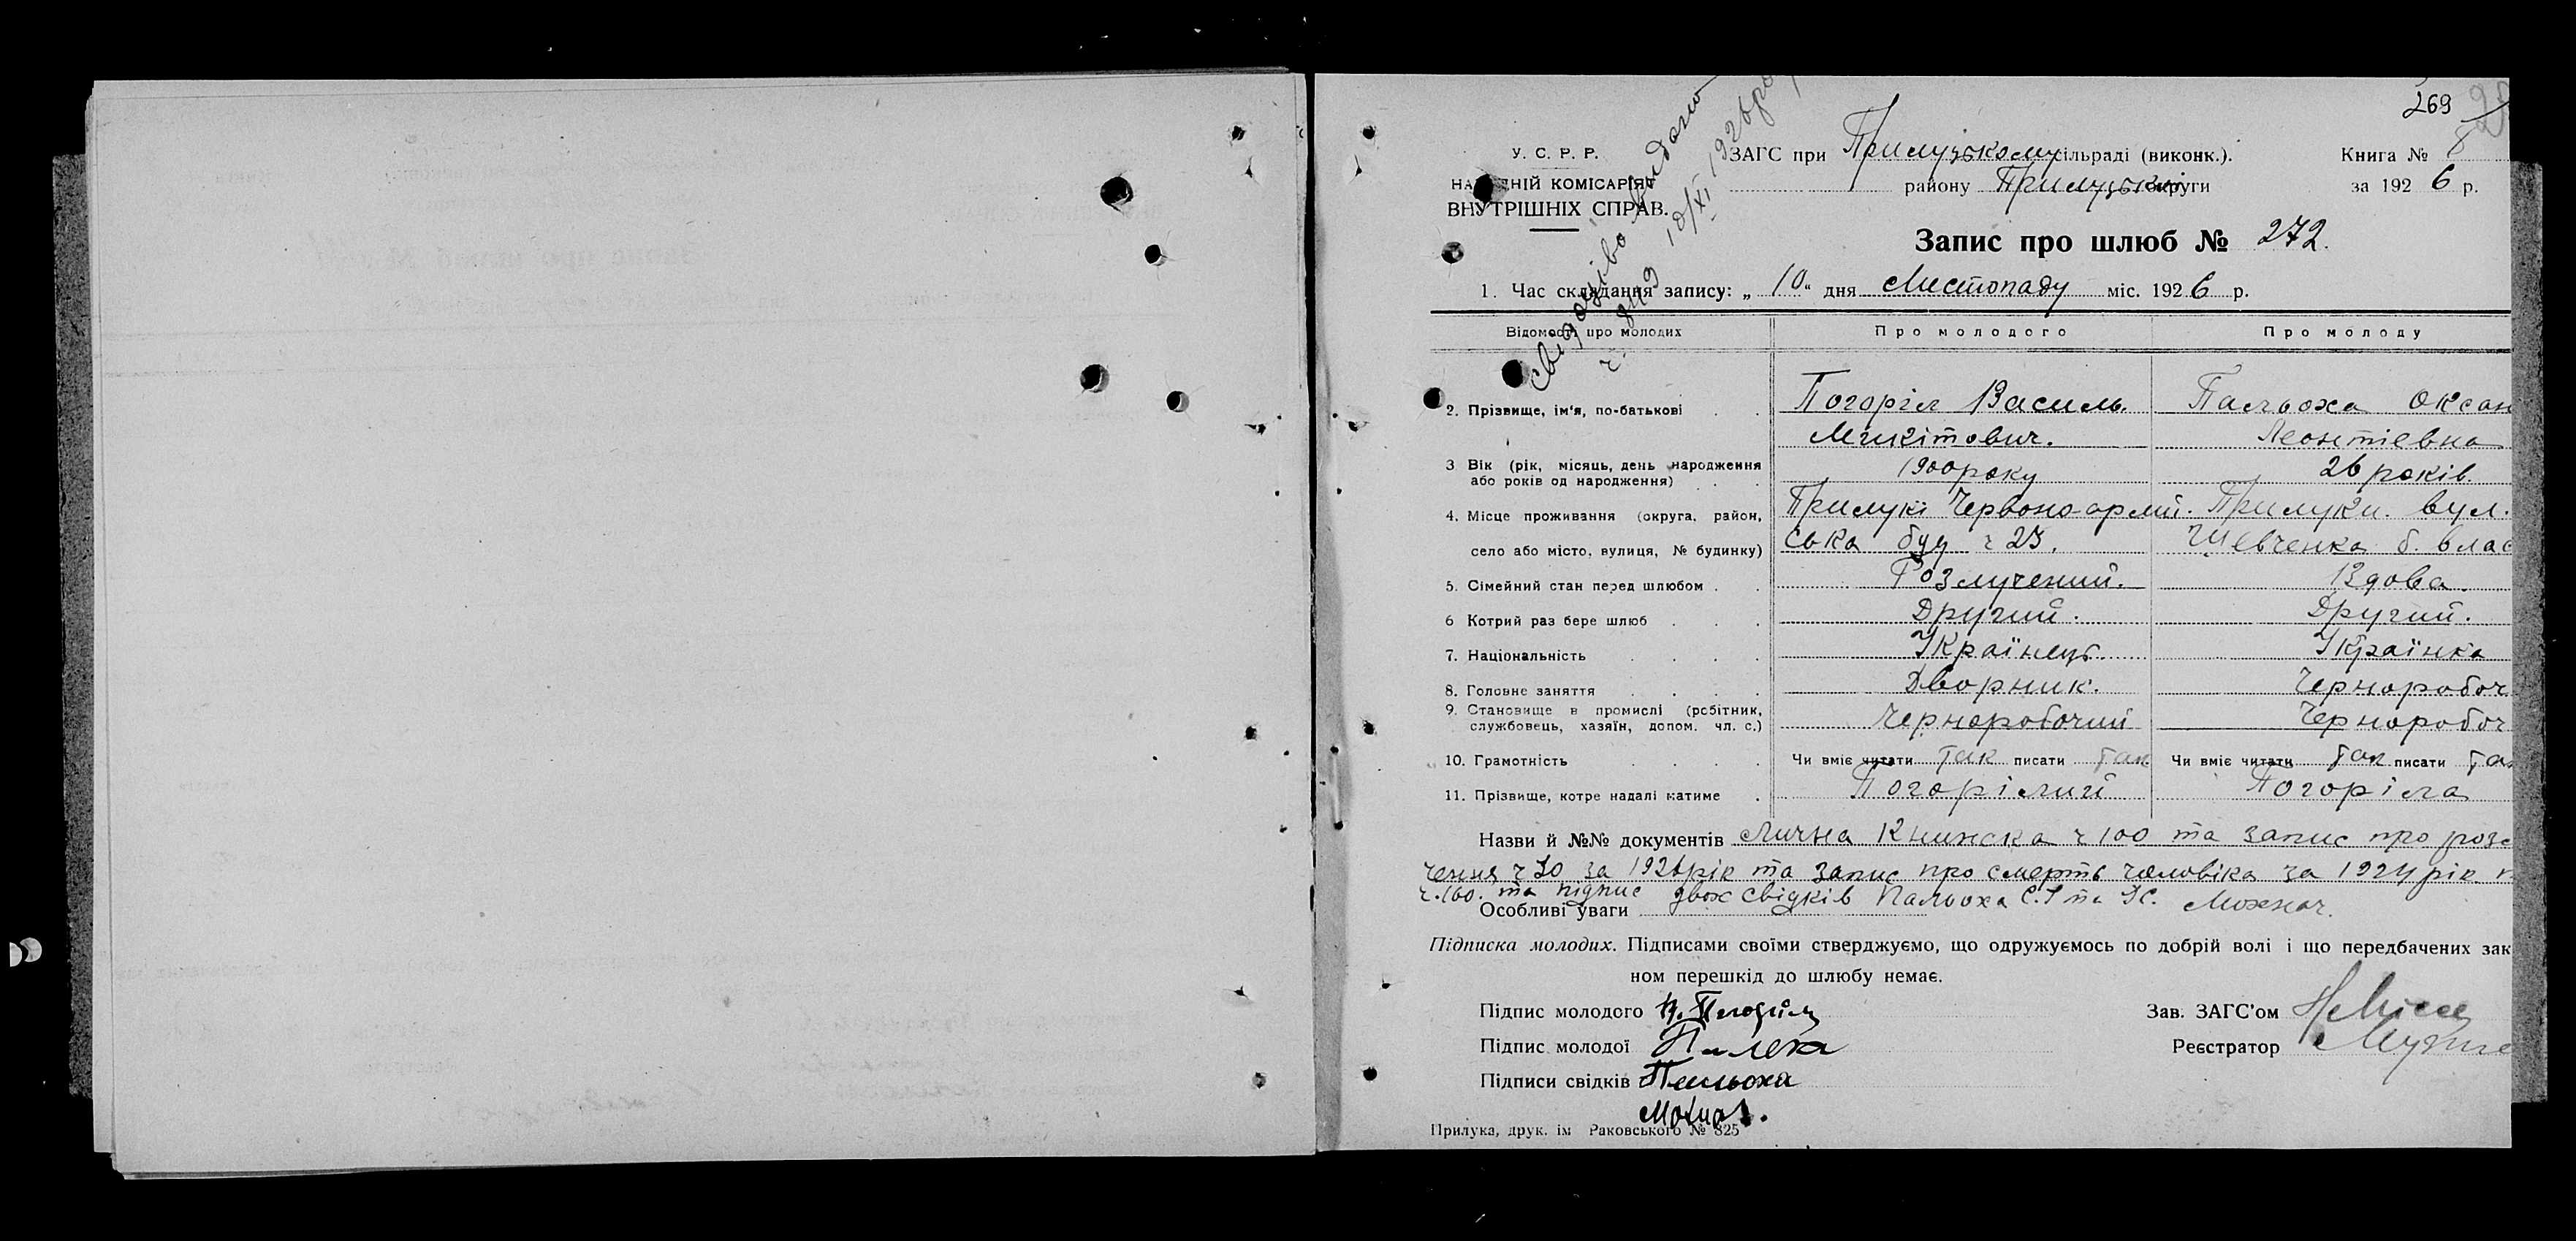 269
У. С. Р. Р.
НАРОДНІЙ КОМІСАРІЯТ
ВНУТРІШНІХ СПРАВ.
Свидоцтво видано
10/XI 1926 р
ЗАГС при Прилуцькому сільраді (виконк.).
району Прилуцької округи
Книга № 8
за 1926 р.
Запис про шлюб № 272.
1. Час складання запису: „10" дня Листопаду міс. 1926 р.
Відомості про молодих Про молодого Про молоду
2. Прізвище, ім'я, по-батькові . . Погоріл Василь Пальоха Оксан
Микітович. Леонтіевна
3 Вік (рік, місяць, день народження 1900 року 26 років.
або років од народження) . .
4. Місце проживання (округа, район, Прилукі Червоно-армій- Прилуки. вул.
село або місто, вулиця, № будинку) ська буд ч 23. Шевченка б. влас
5. Сімейний стан перед шлюбом . . Розлучений. Вдова.
6 Котрий раз бере шлюб . . . Другий. Другий.
7. Національність . . . . Українець. Українка
8. Головне заняття . . . . Дворник. Черноробоч
9. Становище в промислі (робітник, Чернорабочий Черноробоч
службовець, хазяїн, допом. чл. с.)
10. Грамотність . . . . Чи вміє читати так писати так Чи вміє читати так писати так
11. Прізвище, котре надалі матиме . Погорілий Погоріла
Назви й №№ документів Лична Книжска ч 100 та запис про розл
чення ч 30 за 1926 рік та запис про смерть чоловіка за 1924 рік
ч. 160. та підпис двох свідків Пальоха С. та Мохнач.
Особливі уваги
Підписка молодих. Підписами своїми стверджуємо, що одружуємось по добрій волі і що передбачених зак
ном перешкід до шлюбу немає.
Підпис молодого В. Погоріл
Зав. ЗАГС'ом
Підпис молодої
Реєстратор
Підписи свідків Пальоха
Мохнач.
Прилука, друк. ім Раковського № 825